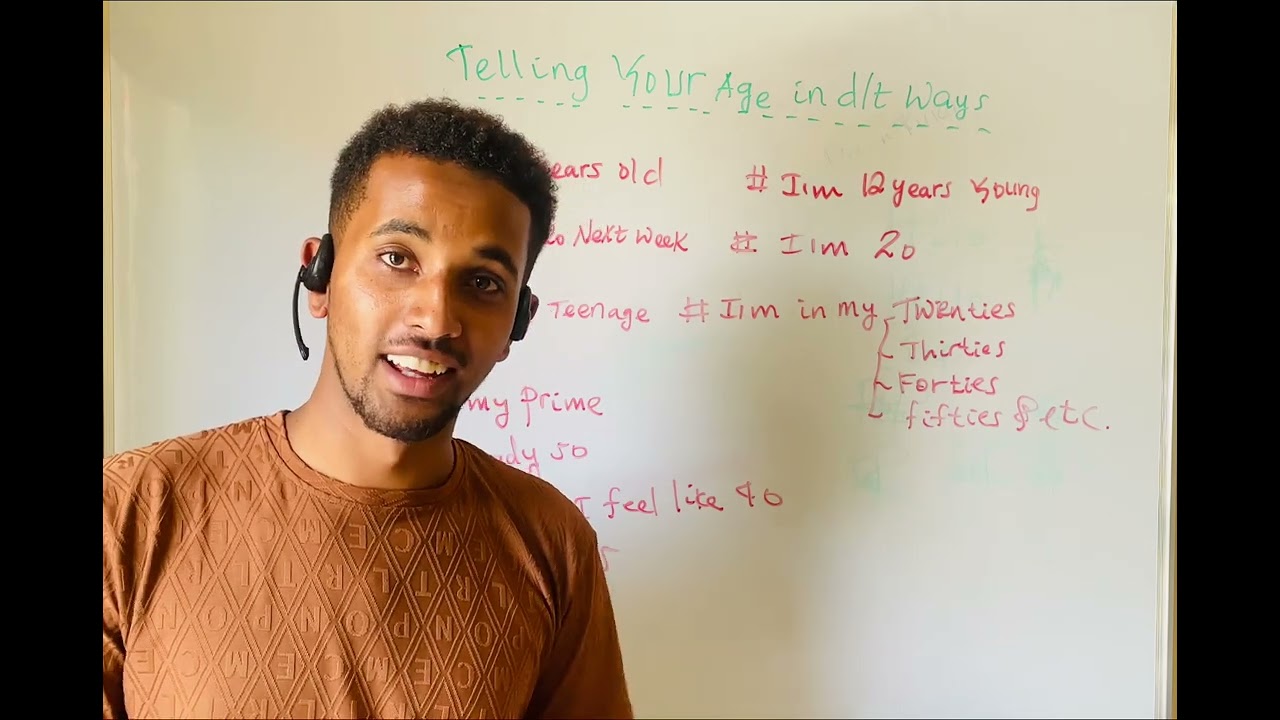 Telling Your Age in d/t Ways
ears old # I'm 12 years Young
Next Week # I'm 20
Teenage # I'm in my Twenties
Thirties
Forties
fifties & etc.
my Prime
50
I feel like 40
5